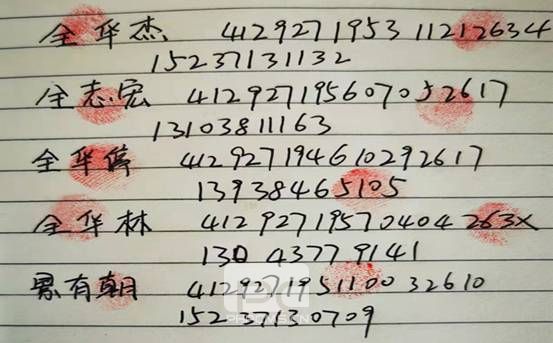 全华杰 412927195311212634
15237131132
全志宏 412927195607052617
13103811163
全华停 412927194610292617
13938465105
全华林 41292719570404263X
13043779141
有朝 412927195110032610
15237130709